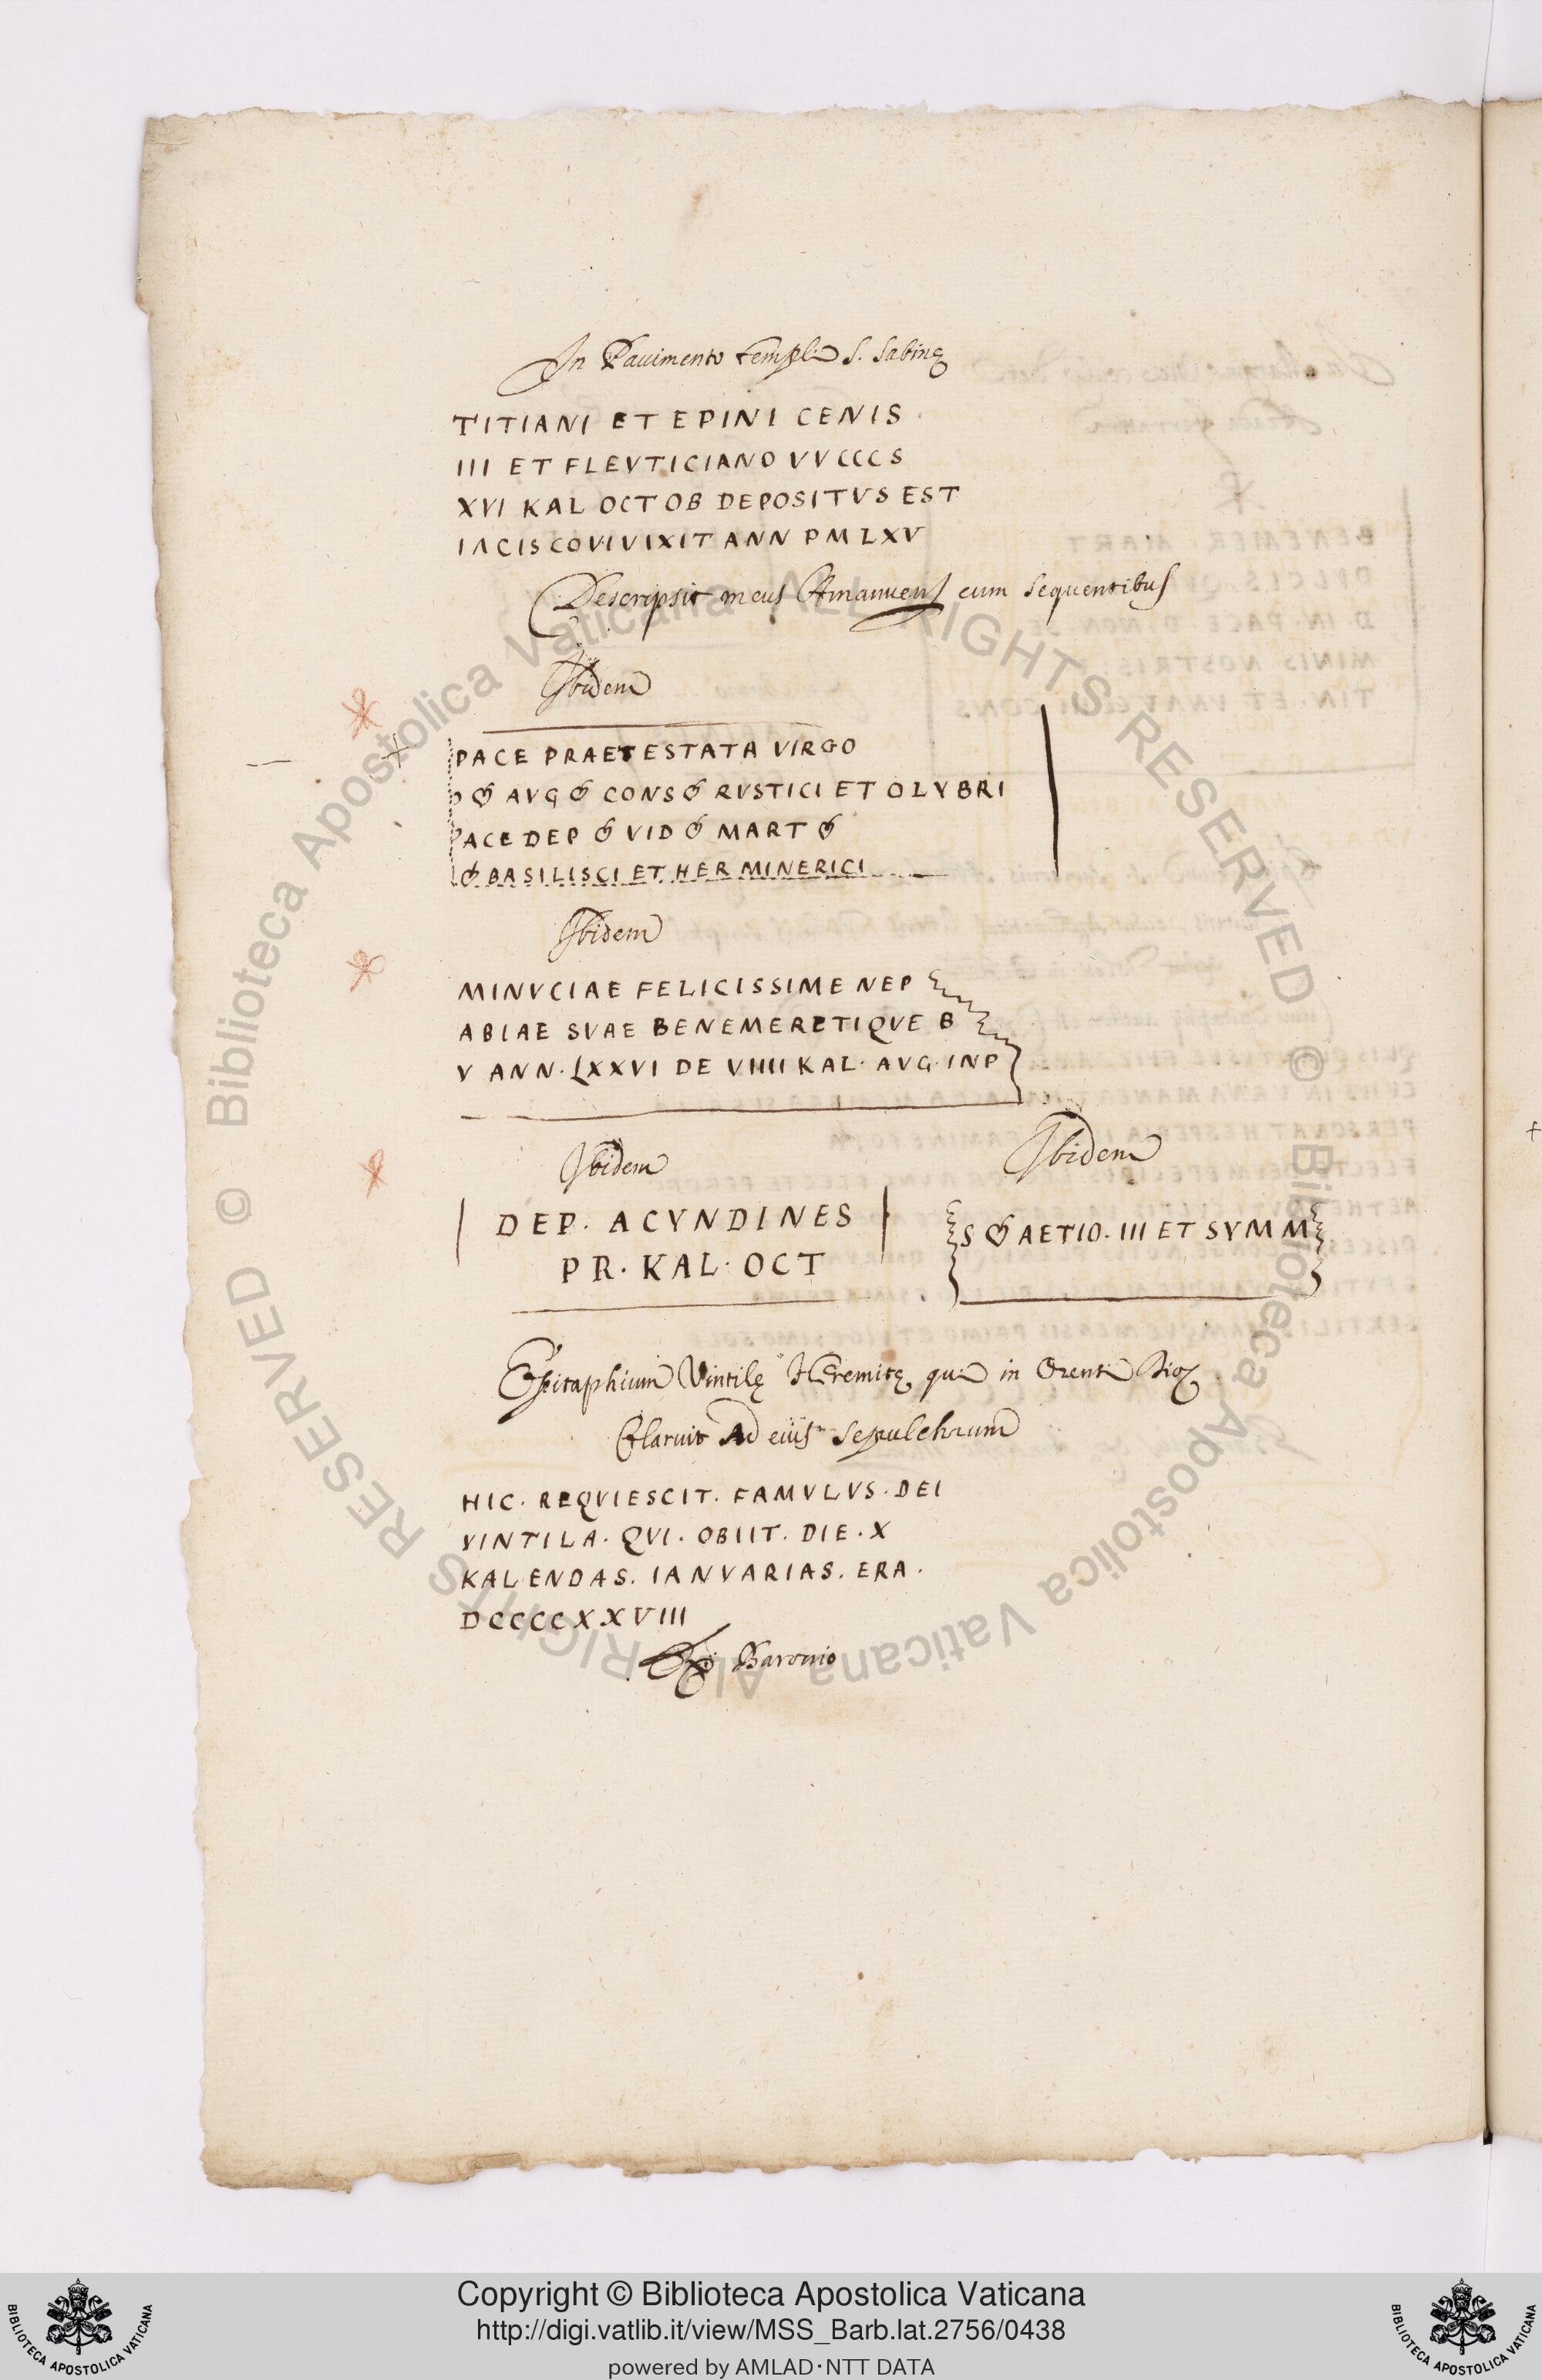 In Pauimento templi S. Sabinę
TITIANI ET EPINI CENIS
III ET FLEVTICIANO VVCCCS
XVI KAL OCTOB DEPOSITVS EST
IACISCOVIVIXIT ANN PMLXV
Descripsit meus Amanuens cum sequentibus
Ibidem
PACE PRAETESTATA VIRGO
AVG CONS RVSTICI ET OLYBRI
PACE DEP VID MART
BASILISCI ET HERMINERICI
Ibidem
MINVCIAE FELICISSIME NEP
ABIAE SVAE BENEMERETIQVE B
V ANN. LXXVI DE VIIII KAL. AVG. INP
Ibidem
DEP. ACVNDINES
PR. KAL. OCT
Ibidem
S AETIO. III ET SYMM
Epitaphium Vintilę Heremitę qui in
Claruit Ad eius sepulchrum
HIC. REQVIESCIT. FAMVLVS. DEI
VINTILA. QVI. OBIIT. DIE. X
KALENDAS. IANVARIAS. ERA.
DCCCCXXVIII
Ex Baronio
© Biblioteca Apostolica Vaticana ALL RIGHTS RESERVED © Biblioteca Apostolica Vaticana ALL RIGHTS RESERVED
Copyright © Biblioteca Apostolica Vaticana
http://digi.vatlib.it/view/MSS_Barb.lat.2756/0438
powered by AMLAD·NTT DATA
BIBLIOTECA APOSTOLICA VATICANA
BIBLIOTECA APOSTOLICA VATICANA